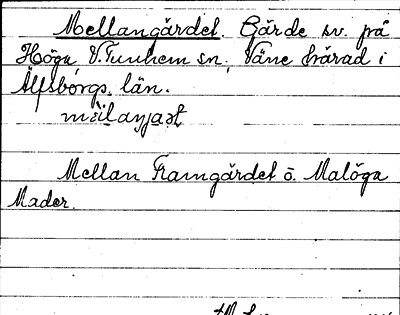 Mellangärdet. Gärde sv. på
Höga V. Tunhem sn, Väne härad i
Älfsborgs län.
Mellan Framgärdet o. Malöga
Mader.